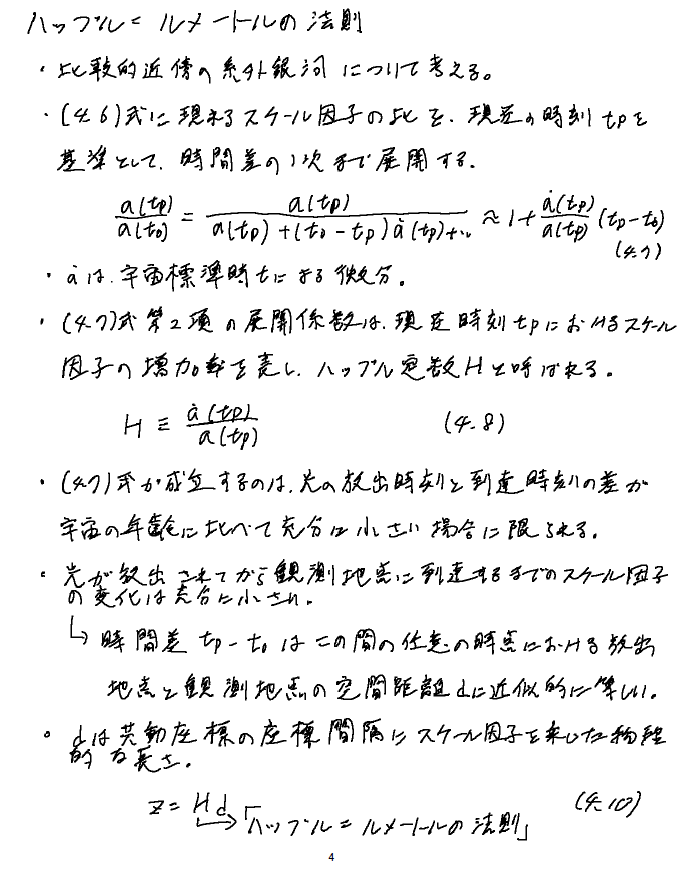 ハッブル=ルメートルの法則
・比較的近傍の系外銀河について考える。
・(4.6)式に現れるスケール因子の比を、現在の時刻 tp を
基準として、時間差の1次まで展開する。
a(tp)/a(t0) = a(tp)/(a(tp)+(t0-tp)ȧ(tp)+…) ≈ 1+ ȧ(tp)/a(tp) (tp-t0)
(4.7)
・ȧは、宇宙標準時tによる微分。
・(4.7)式第2項の展開係数は、現在時刻tpにおけるスケール
因子の増加率を表し、ハッブル定数Hと呼ばれる。
H ≡ ȧ(tp)/a(tp) (4.8)
・(4.7)式が成立するのは、光の放出時刻と到達時刻の差が
宇宙の年齢に比べて充分に小さい場合に限られる。
・光が放出されてから観測地点に到達するまでのスケール因子
の変化は充分に小さい。
↳ 時間差 tp-t0 はこの間の任意の時点における放出
地点と観測地点の空間距離dに近似的に等しい。
・dは共動座標の座標間隔にスケール因子を乗した物理
的な長さ。
z = Hd (4.10)
→「ハッブル=ルメートルの法則」
4